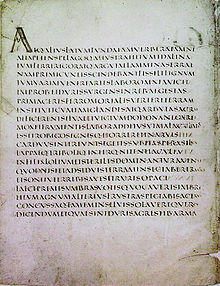 ATQVEALIVSLATVMFVNDAIAMVERBERATAMNEM
ALTAPETENSPELAGOQVEALIVSTRAHITVMIDALINA
TVMFERRIRIGORATQVEARGVTAELAMMINASERRAE
NAMPRIMICVNEISSCINDEBANTFISSILELIGNVM
TVMVARIAEVENEREARTESLABOROMNIAVICIT
IMPROBVSETDVRISVRGENSINREBVSEGESTAS
PRIMACERESFERROMORTALISVERTERETERRAM
INSTITVITCVMIAMGLANDESATQVEARBVTASACRAE
DEFICERENTSILVAEETVICTVMDODONANEGARET
MOXETFRVMENTISLABORADDITVSVTMALACVLMOS
ESSETROBIGOSEGNISQVEHORRERETINARVIS
CARDVVSINTEREVNTSEGETESSVBITASPERASILVA
LAPPAEQVETRIBOLIQVEINTERQVENITENTIACVLTA
INFELIXLOLIVMETSTERILESDOMINANTVRAVENAE
QVODNISIETADSIDVISTERRAMINSECTABERERASTRIS
ETSONITVTERREBISAVESETRVRISOPACI
FALCEPREMESVMBRASVOTISQVEVOCAVERISIMBREM
HEVMAGNVMALTERIVSFRVSTRASPECTABISACERVOM
CONCVSSAQVEFAMEMINSILVISSOLABEREQVERCV
DICENDVMETQVAESINTDVRISAGRESTIBVSARMA